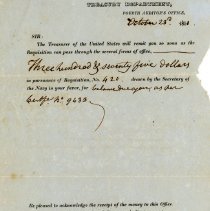 TREASURY DEPARTMENT,
FOURTH AUDITOR'S OFFICE,
October 23d 18
SIR:
The Treasurer of the United States will remit you as soon as the
Requisition can pass through the several forms of office,
Three hundred & seventy five dollars
in pursuance of Requisition, No. 420 drawn by the Secretary of
the Navy in your favor, for balance due you, as per
Certfe. No. 9633.
Be pleased to acknowledge the receipt of the money to this Office.